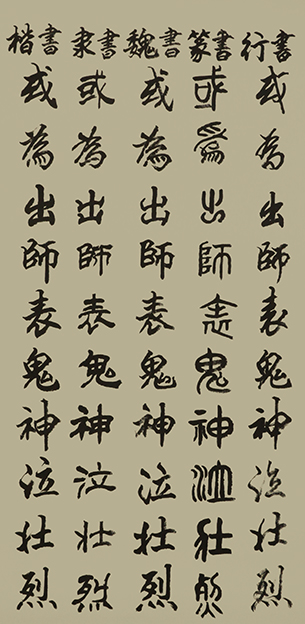 楷書
或為出師表鬼神泣壮烈
隶書
或為出師表鬼神泣壮烈
魏書
或為出師表鬼神泣壮烈
篆書
或為出師表鬼神泣壮烈
行書
或為出師表鬼神泣壮烈